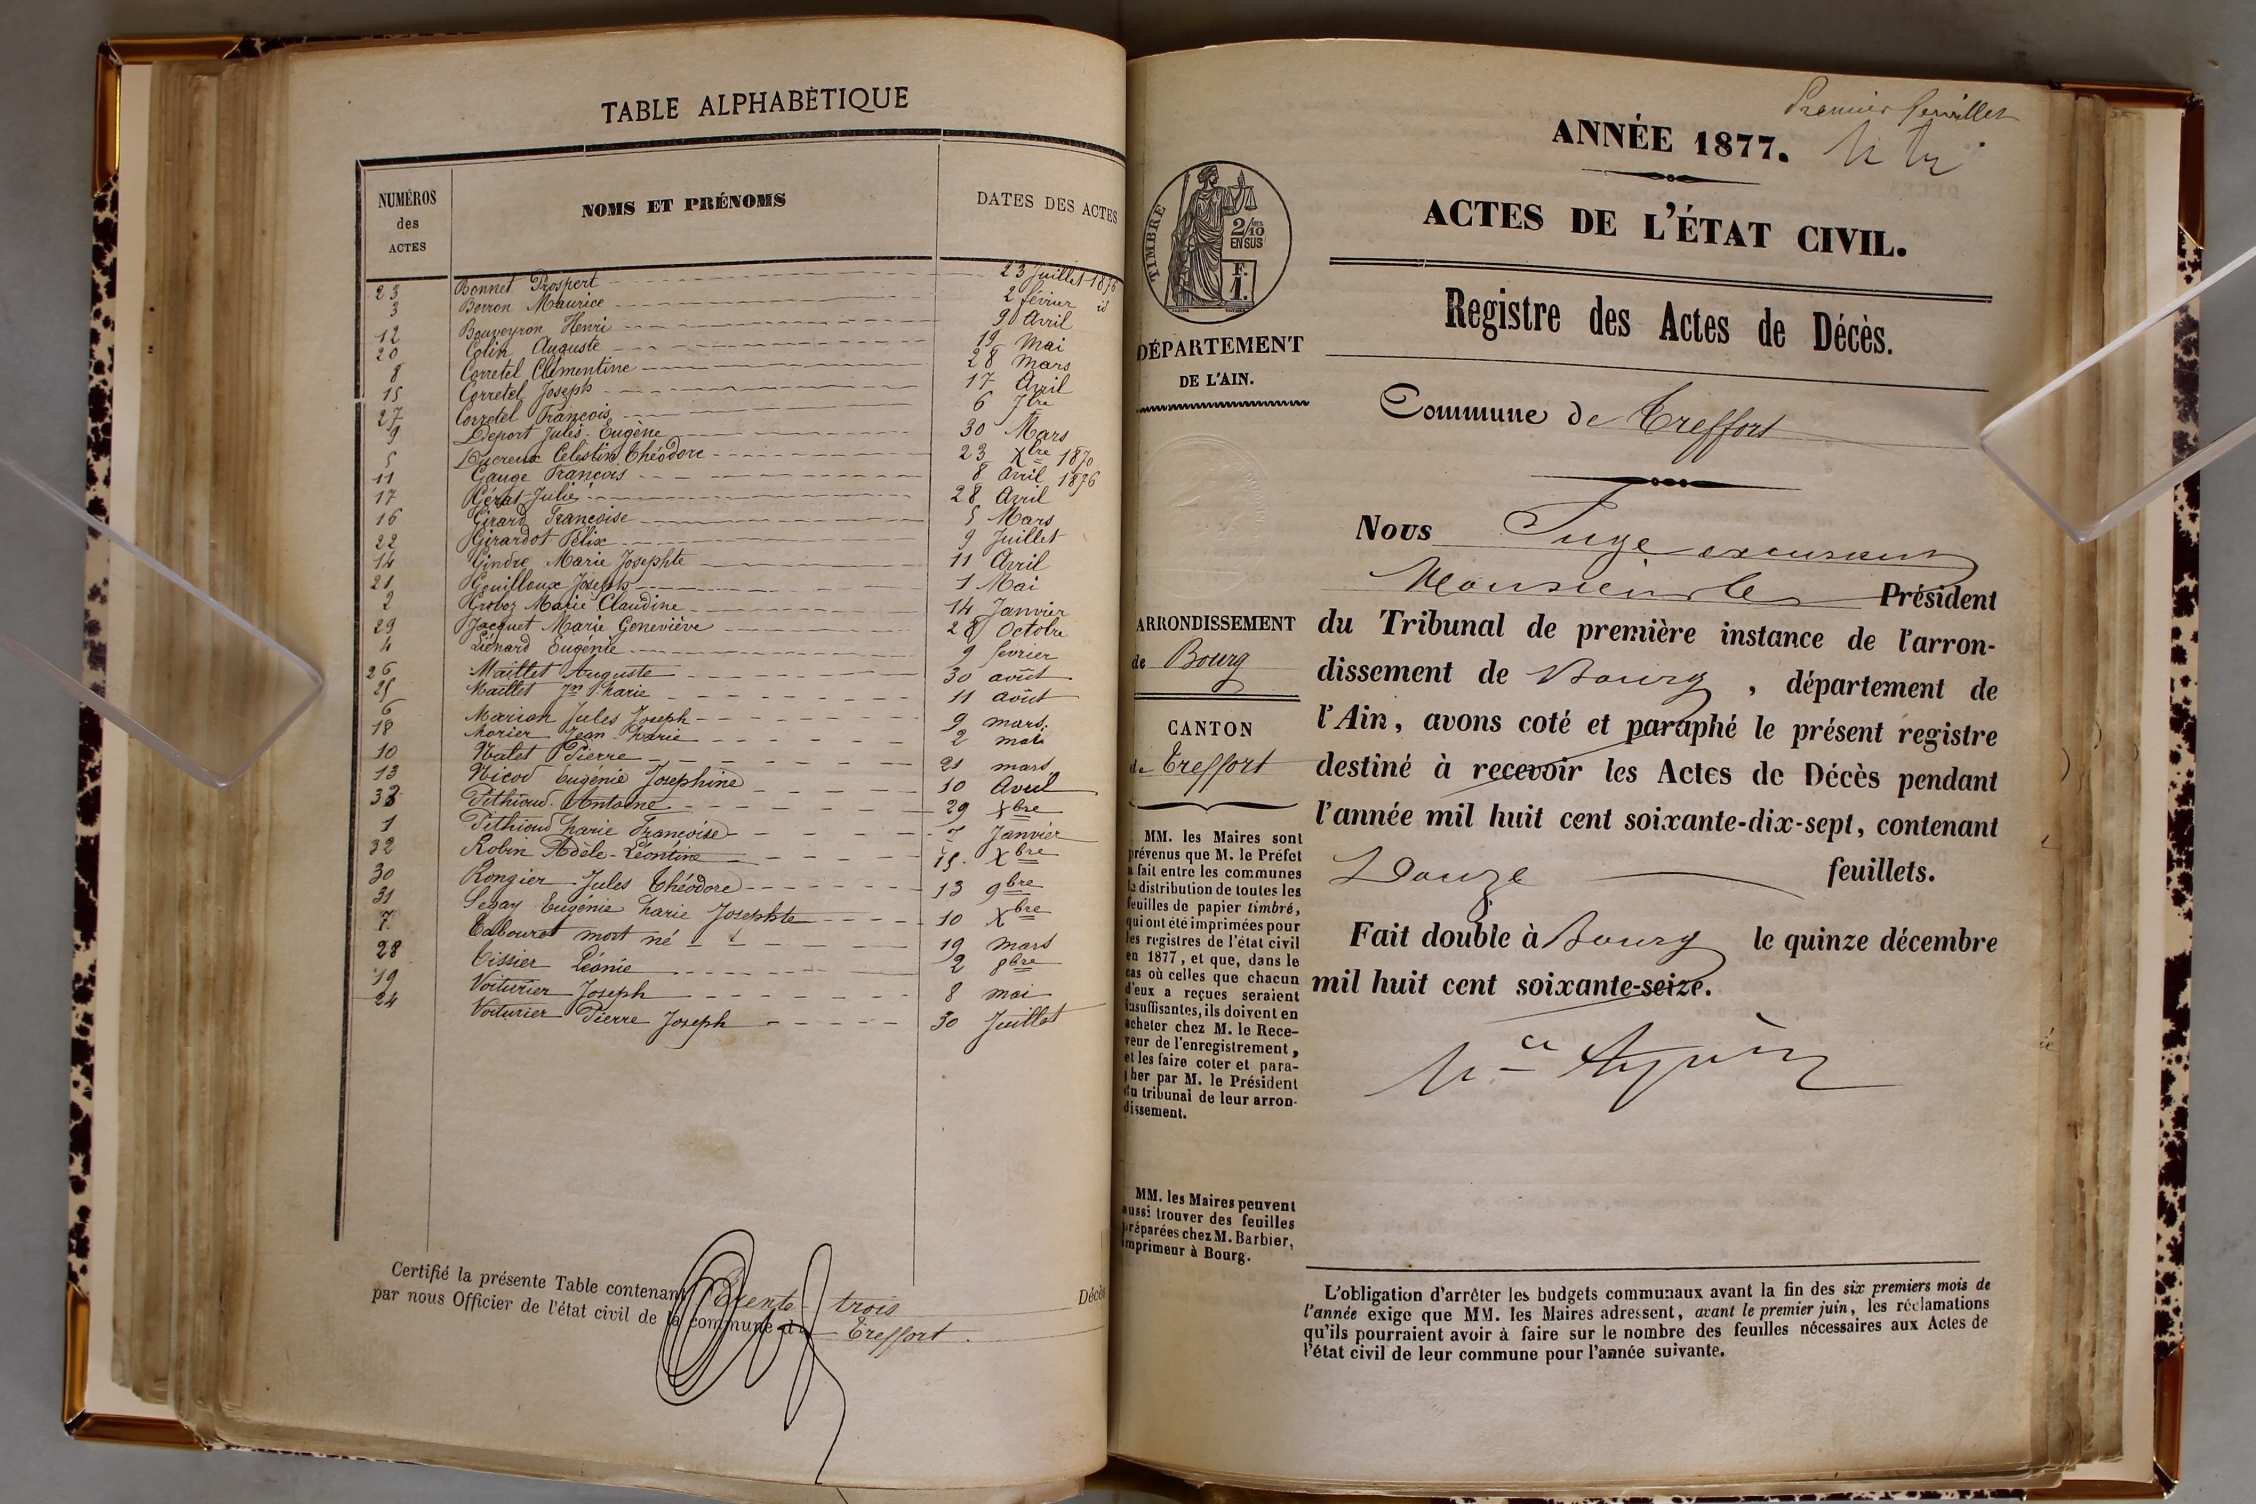 TABLE ALPHABÉTIQUE
NUMÉROS des ACTES
NOMS ET PRÉNOMS
DATES DES ACTES
23 Bonnet Prospert 23 Juillet 1876
3 Borron Maurice 2 février id
12 Bouveyron Henri 9 Avril
20 Colin Auguste 19 Mai
8 Corretel Clémentine 28 Mars
15 Corretel Joseph 17 Avril
27 Corretel François 6 7bre
9 Deport Jules Eugène 30 Mars
5 Ducreux Célestin Théodore 23 Xbre 1870
11 Gauge François 8 Avril 1876
17 Julie 28 Avril
16 Girard Françoise 5 Mars
22 Girardot Félix 9 Juillet
14 Gindre Marie Josephte 11 Avril
21 Gouilloux Joseph 1 Mai
2 Marie Claudine 14 Janvier
29 Jacquet Marie Geneviève 28 Octobre
4 Liénard Eugénie 9 février
26 Maillet Auguste 30 août
25 Maillet Marie 11 août
6 Marion Jules Joseph 9 mars
18 Morier Jean Marie 2 mai
10 Natet Pierre 21 mars
13 Nicod Eugénie Josephine 10 Avril
33 Pethioud Antoine 29 Xbre
1 Pethioud Marie Françoise 7 Janvier
32 Robin Adèle-Léontine 15 Xbre
30 Rongier Jules Théodore 13 9bre
31 Segay Eugénie Marie Josephte 10 Xbre
7 Tabouret mort né 19 mars
28 Tissier Léonie 2 8bre
19 Voiturier Joseph 8 mai
24 Voiturier Pierre Joseph 30 Juillet
Certifié la présente Table contenant Trente-trois Décès
par nous Officier de l'état civil de la commune de Treffort.
Premier feuillet
ANNÉE 1877.
ACTES DE L'ÉTAT CIVIL.
Registre des Actes de Décès.
TIMBRE
2/10
EN SUS
F.
1.
DÉPARTEMENT
DE L'AIN.
Commune de Treffort
Nous Juge
Monsieur le Président
du Tribunal de première instance de l'arron-
dissement de Bourg, département de
l'Ain, avons coté et paraphé le présent registre
destiné à recevoir les Actes de Décès pendant
l'année mil huit cent soixante-dix-sept, contenant
Douze feuillets.
Fait double à Bourg le quinze décembre
mil huit cent soixante-seize.
ARRONDISSEMENT
de Bourg
CANTON
de Treffort
MM. les Maires sont
prévenus que M. le Préfet
a fait entre les communes
la distribution de toutes les
feuilles de papier timbré,
qui ont été imprimées pour
les registres de l'état civil
en 1877, et que, dans le
cas où celles que chacun
d'eux a reçues seraient
insuffisantes, ils doivent en
acheter chez M. le Rece-
veur de l'enregistrement,
et les faire coter et para-
pher par M. le Président
du tribunal de leur arron-
dissement.
MM. les Maires peuvent
aussi trouver des feuilles
préparées chez M. Barbier,
imprimeur à Bourg.
L'obligation d'arrêter les budgets communaux avant la fin des six premiers mois de
l'année exige que MM. les Maires adressent, avant le premier juin, les réclamations
qu'ils pourraient avoir à faire sur le nombre des feuilles nécessaires aux Actes de
l'état civil de leur commune pour l'année suivante.